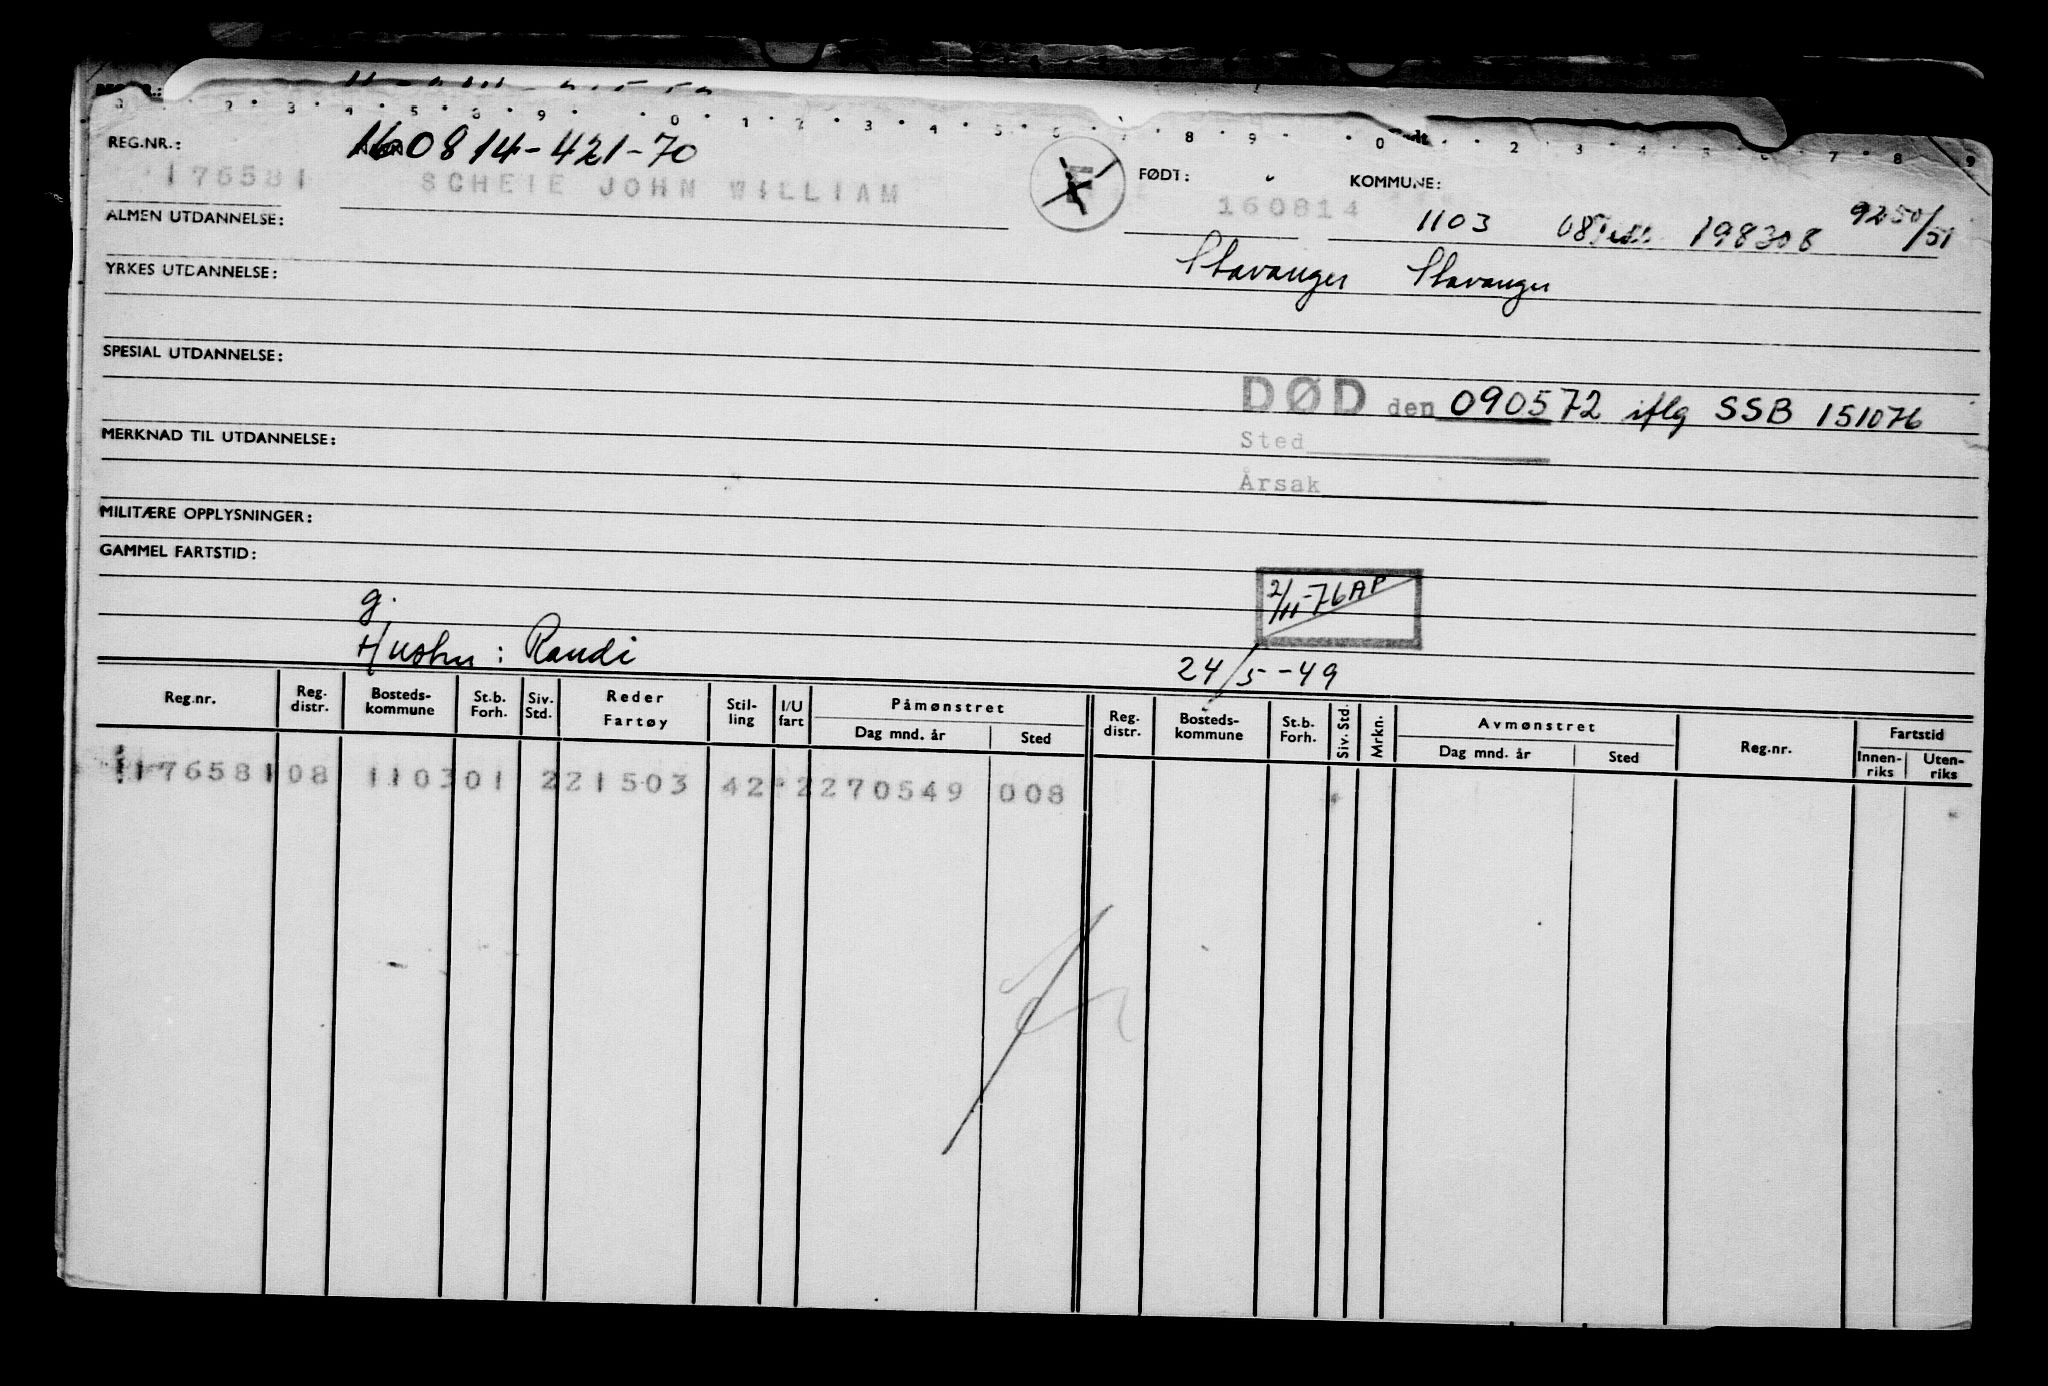 REG.NR.: 160814-421-70
176581 SCHEIE JOHN WILLIAM FØDT: 160814 KOMMUNE:
ALMEN UTDANNELSE: 1103 08 198308 9250/51
YRKES UTDANNELSE: Stavanger Stavanger
SPESIAL UTDANNELSE:
DØD den 090572 iflg SSB 151076
MERKNAD TIL UTDANNELSE: Sted
Årsak
MILITÆRE OPPLYSNINGER:
GAMMEL FARTSTID:
2/11-76 AP
g.
Hustru: Randi 24/5-49
Reg.nr. Reg. distr. Bosteds-kommune St.b. Forh. Siv. Std. Reder Fartøy Stil-ling I/U fart Påmønstret Dag mnd. år Sted Reg. distr. Bosteds-kommune St.b. Forh. Siv. Std. Mrkn. Avmønstret Dag mnd. år Sted Reg.nr. Fartstid Innen-riks Uten-riks
176581 08 1103 01 2 21503 42 2 270549 008